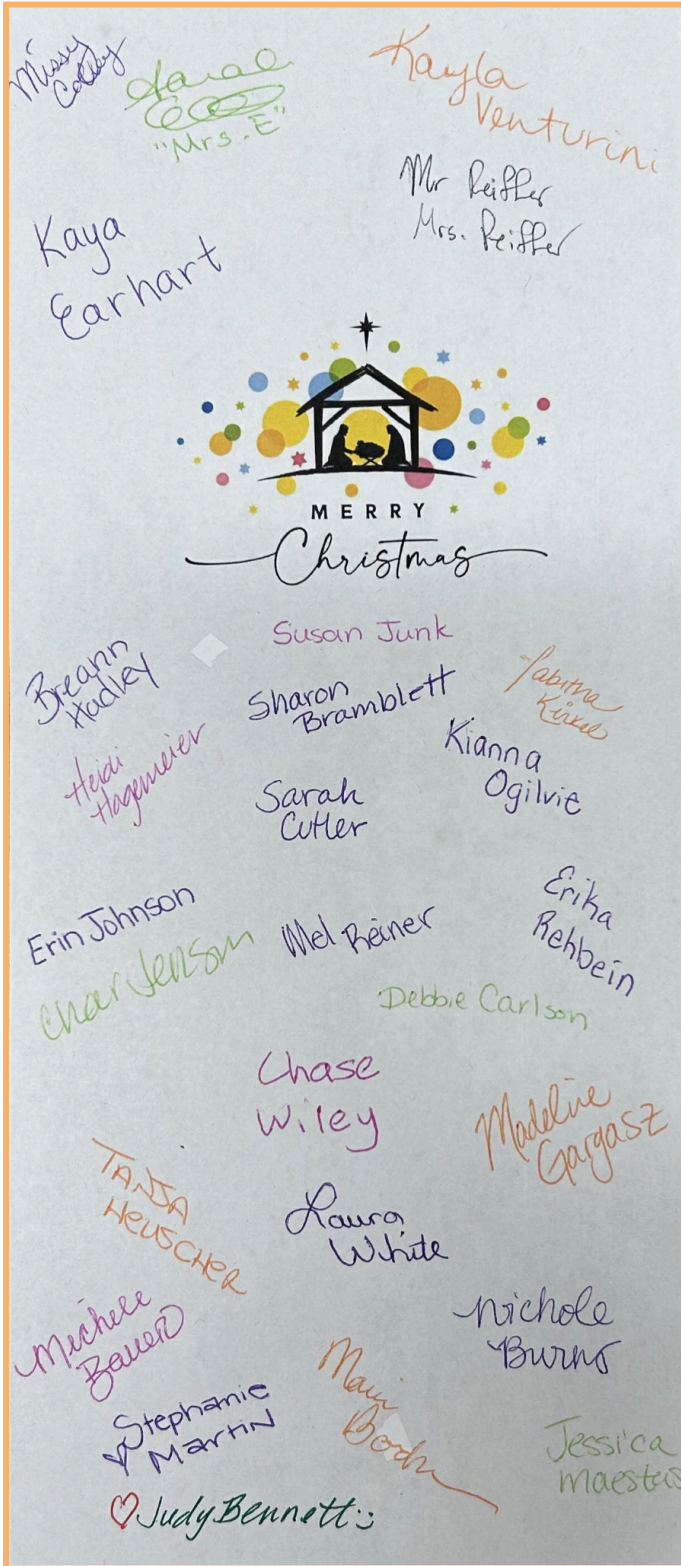 Missy
Sarah
"Mrs. E"
Kayla
Venturini
Mr Peiffer
Mrs. Peiffer
Kaya
Earhart
MERRY
Christmas
Susan Junk
Breann
Hadley
Sharon
Bramblett
Tabitha
Kinkel
Heidi
Hagemeier
Kianna
Ogilvie
Sarah
Cutler
Erin Johnson
Mel Reiner
Erika
Rehbein
Char Jenson
Debbie Carlson
Chase
Wiley
Madeline
Gargasz
TANJA
HEUSCHER
Laura
White
Michele
Bauer
Nichole
Burns
Stephanie
Martin
Jessica
Maestas
Judy Bennett